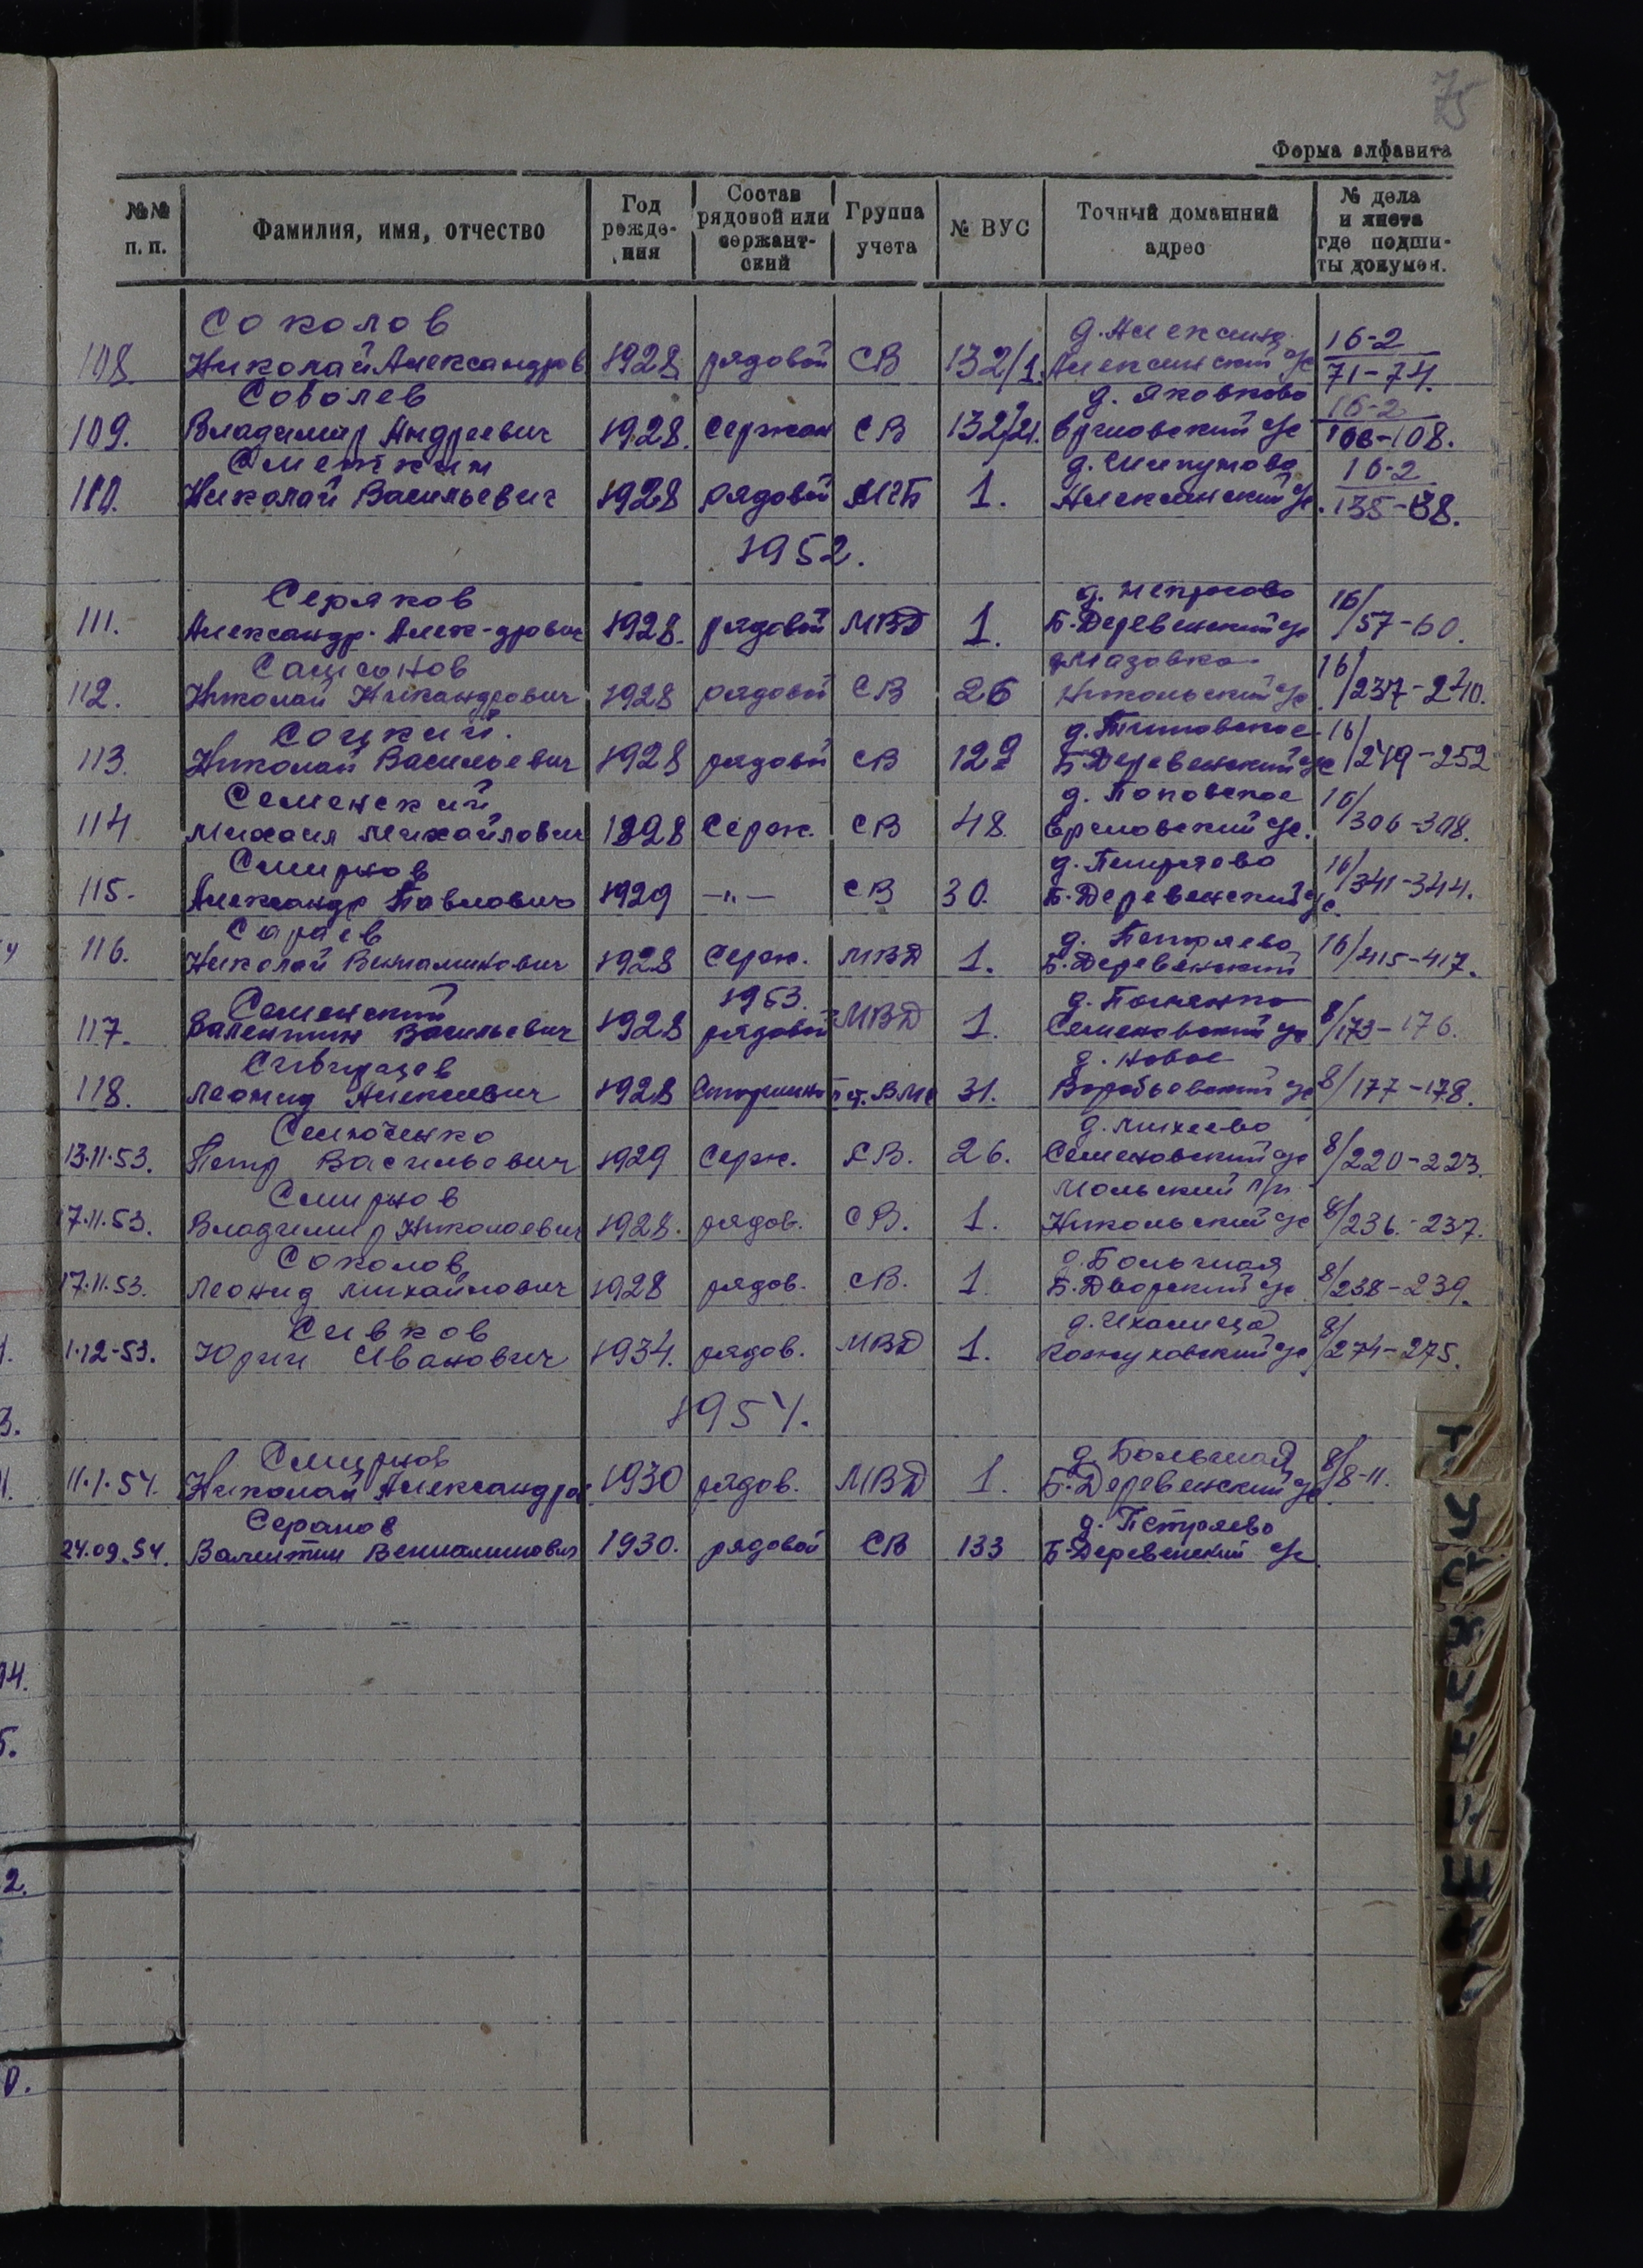 75
Форма алфавита
№№ п. п. Фамилия, имя, отчество Год рожде-ния Состав рядовой или сержант-ский Группа учета № ВУС Точный домашний адрес № дела и листа где подши-ты докумен.
Соколов д. Алексино 16-2
108. Николай Александров 1928 рядовой СВ 132/1. Алексинский с/с 71-74.
Соболев д. Яковково 16-2
109. Владимир Андреевич 1928. Сержан СВ 132/21. с/с 106-108.
Сметкин 16-2
110. Николай Васильевич 1928 рядовой МГБ 1. Алексинский с/с. 135-138.
1952.
Серяков д. Некрасово 16/
111. Александр Алек-дрович 1928. рядовой МВД 1. Б-Деревенский с/с 57-60.
Самсонов 16/
112. Николай Никандрович 1928 рядовой СВ 26 Никольский с/с 237-240.
Соцкий. 16/
113. Николай Васильевич 1928 рядовой СВ 129 Б-Деревенский с/с 249-252
Семенский д. Поповское 16/
114 Михаил Михайлович 1928 Серж. СВ 48. с/с. 306-308.
Смирнов д. Петряево 16/
115. Александр Павлович 1929 —"— СВ 30. Б-Деревенский с/с. 341-344.
Сараев д. Петряево 16/
116. Николай Вениаминович 1928 Серж. МВД 1. Б-Деревенский 415-417.
1953.
Семенский 8/
117. Валентин Васильевич 1928 рядовой МВД 1. Семеновский с/с 173-176.
д. Новое
118. Леонид Алексеевич 1928 31. Воробьевский с/с 8/177-178.
Семоченко д. Михеево
13.11.53. Петр Васильевич 1929 Серж. СВ. 26. Семеновский с/с 8/220-223.
Смирнов
17.11.53. Владимир Николаевич 1928. рядов. СВ. 1. Никольский с/с 8/236-237.
Соколов
17.11.53. Леонид Михайлович 1928 рядов. СВ. 1. Б-Дворский с/с 8/238-239.
Сивков 8/
1.12-53. Юрий Иванович 1934. рядов. МВД 1. Кожуховский с/с 274-275.
1954.
Смирнов д. Большая 8/
11.1.54. Николай Александров 1930 рядов. МВД 1. Б-Деревенский с/с 8-11.
д. Петряево
24.09.54. Валентин Вениаминович 1930. рядовой СВ 133 Б-Деревенский с/с